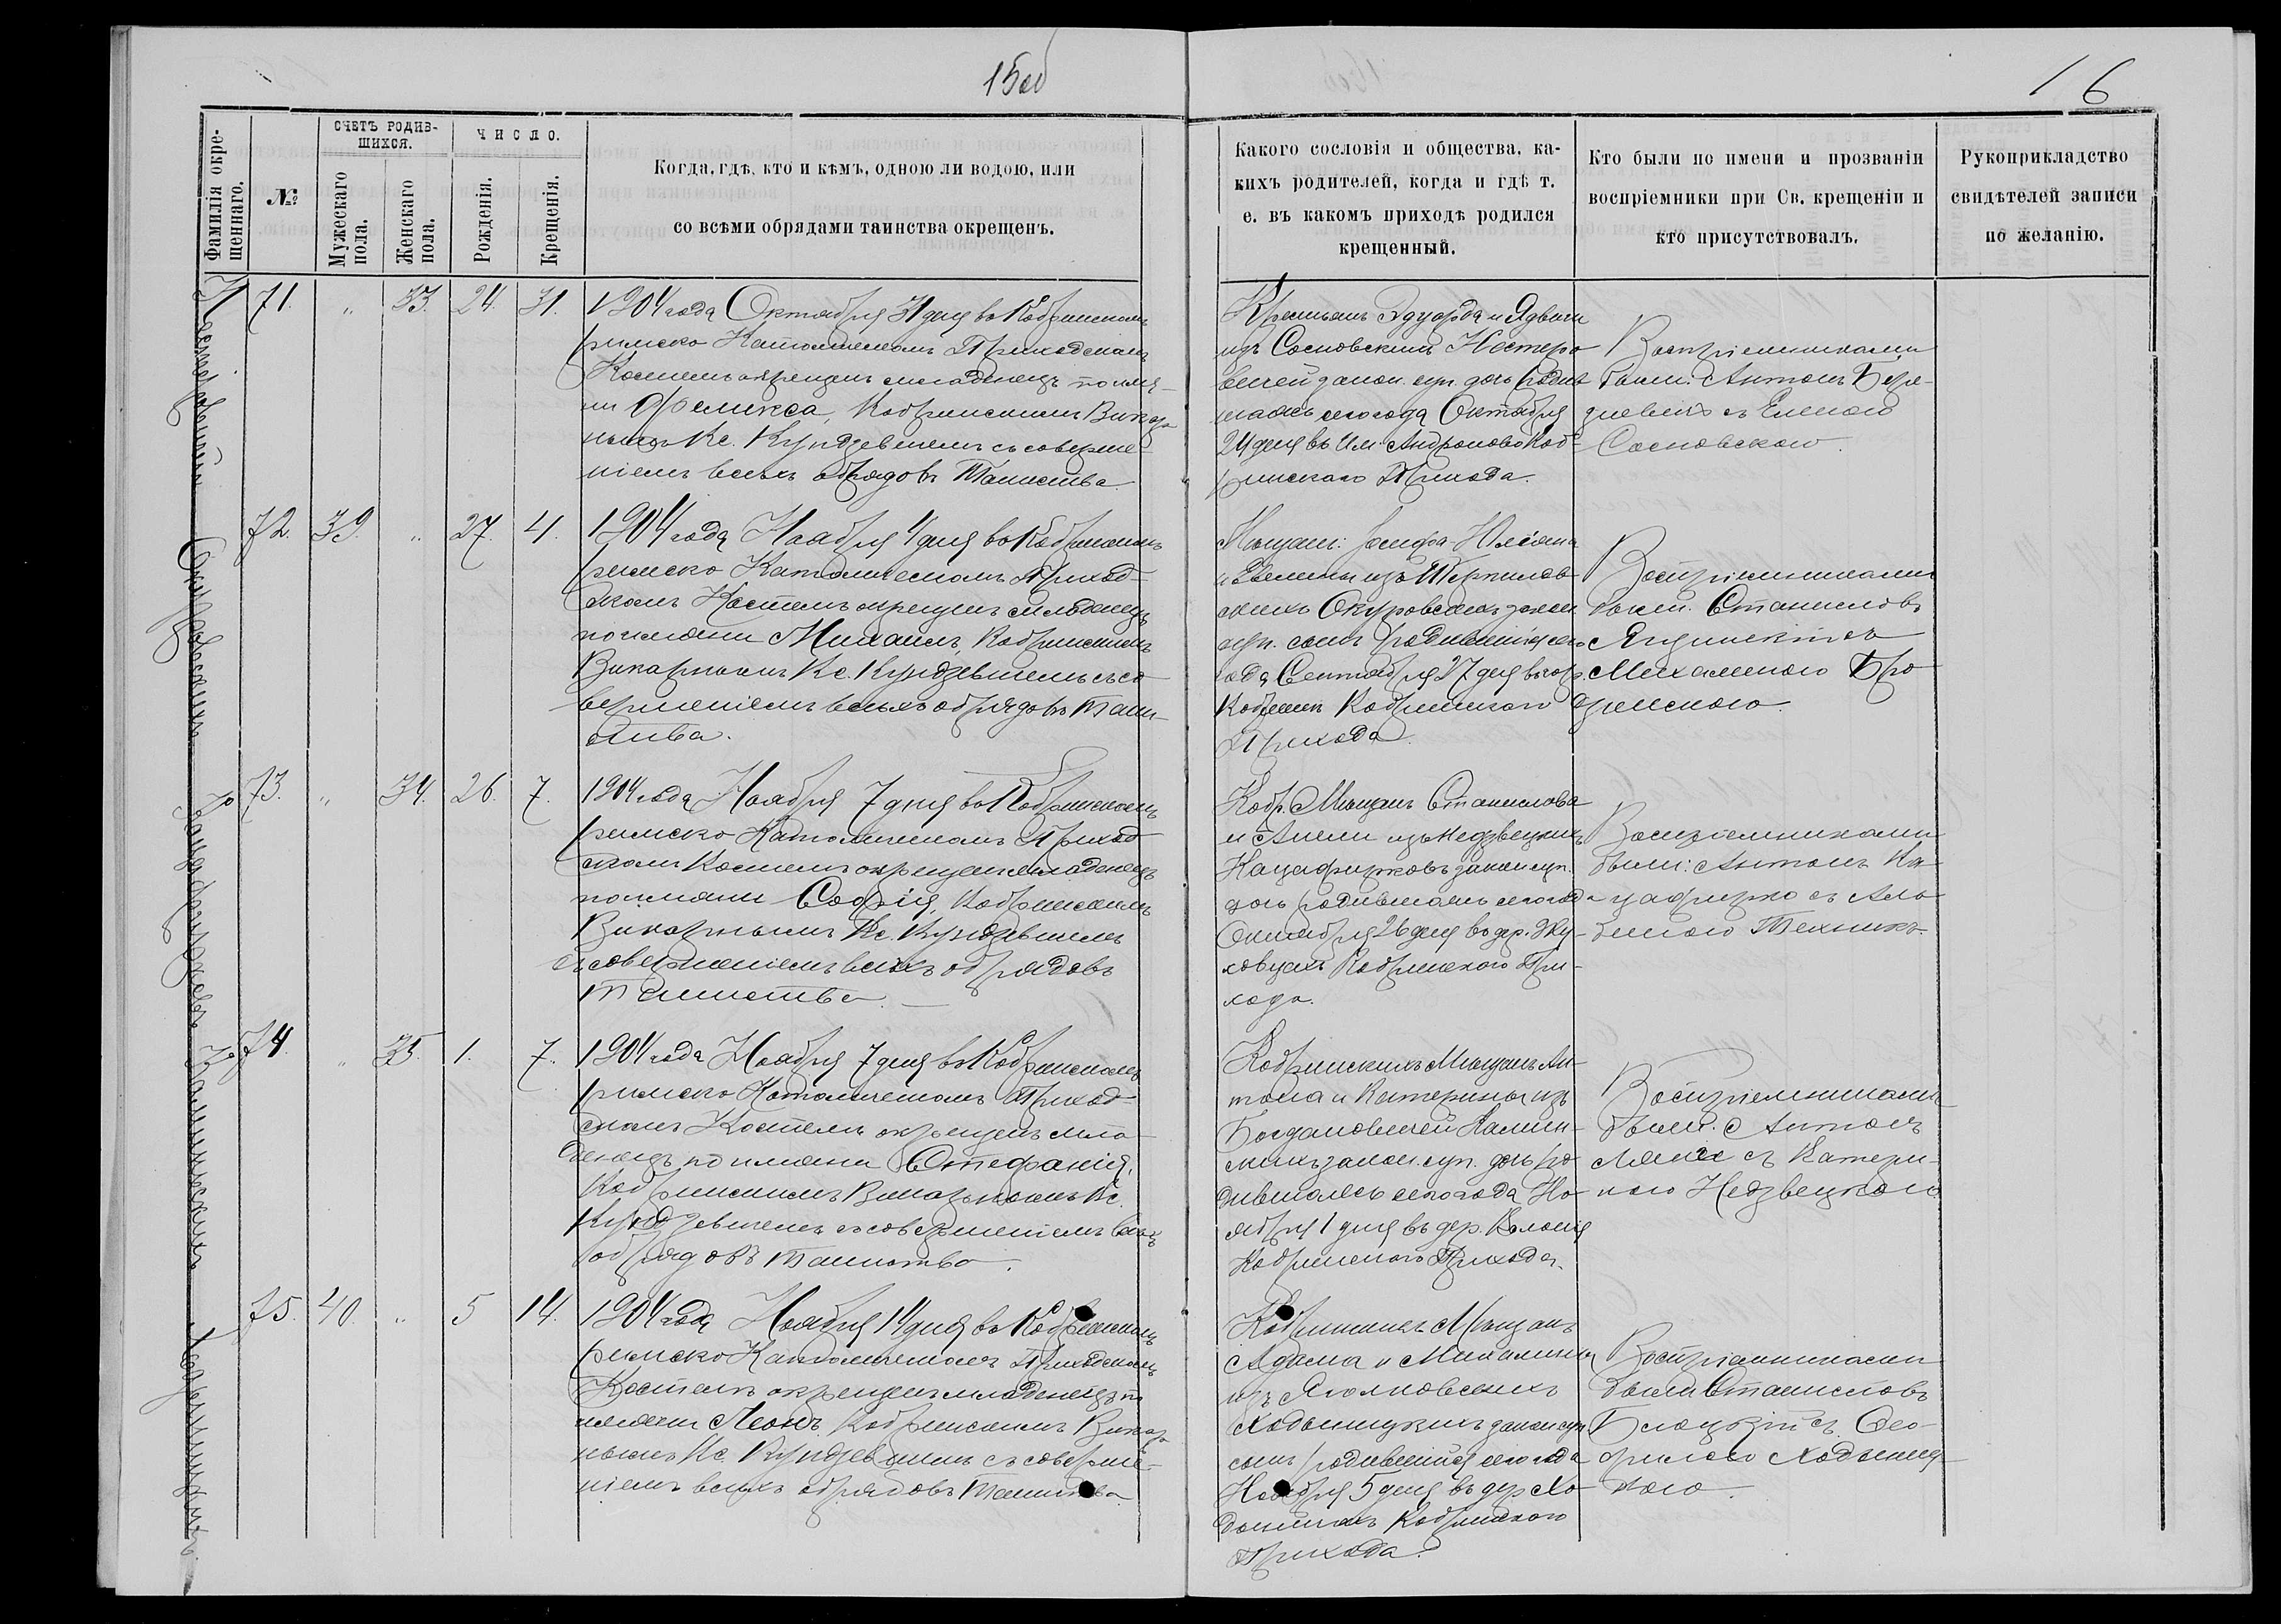 15об
16
Фамилія окре-
щеннаго.
№
СЧЕТЪ РОДИВ-
ШИХСЯ.
Мужескаго
пола.
Женскаго
пола.
ЧИСЛО.
Рожденія.
Крещенія.
Когда, гдѣ, кто и кѣмъ, одною ли водою, или
со всѣми обрядами таинства окрещенъ.
Какого сословія и общества, ка-
кихъ родителей, когда и гдѣ т.
е. въ какомъ приходѣ родился
крещенный.
Кто были по имени и прозванію
воспріемники при Св. крещеніи и
кто присутствовалъ.
Рукоприкладство
свидѣтелей записи
по желанію.
71. " 33. 24. 31.
1904 года Октября 31 дня во Кобринскомъ
римско Католическомъ Приходскомъ
Костелѣ окрещенъ младенецъ по име-
ни Феликса, Кобринскимъ Викар-
нымъ Кс. Кундзевичемъ съ соверше-
ніемъ всѣхъ обрядовъ Таинства.
Крестьянъ Эдуарда и Ядвиги
изъ Сосновскихъ Нестеро-
вичей закон. суп. дочь родив-
шаясь сего года Октября
24 дня въ Им. Андроново Коб-
ринскаго Прихода.
Воспріемниками
были: Антонъ
съ Еленою
Сосновскою.
Окуровскихъ
72. 39. " 27. 4.
1904 года Ноября 4 дня во Кобринскомъ
римско Католическомъ Приход-
скомъ Костелѣ окрещенъ младенецъ
по имени Михаилъ, Кобринскимъ
Викарнымъ Кс. Кундзевичемъ съ со-
вершеніемъ всѣхъ обрядовъ Таин-
ства.
Мѣщанъ: Іосифа-
и Эвелины изъ
Окуровскихъ закон.
суп. сынъ родившійся сего
года Сентября 27 дня въ гор.
Кобринѣ Кобринскаго
Прихода.
Воспріемниками
были: Станиславъ
съ
Михалиною Бро-
Кацафирковъ
73. " 34. 26. 7.
1904 года Ноября 7 дня во Кобринскомъ
римско Католическомъ Приход-
скомъ Костелѣ окрещенъ младенецъ
по имени Софія, Кобринскимъ
Викарнымъ Кс. Кундзевичемъ
съ совершеніемъ всѣхъ обрядовъ
Таинства.
Кобр. Мѣщанъ Станислава
и Анели изъ Недзвецкихъ
Кацафирковъ закон. суп.
дочь родившаясь сего года
Октября 26 дня въ дер. Жу-
ховцахъ Кобринскаго При-
хода.
Воспріемниками
были: Антонъ Ка-
цафирко съ Аль-
биною
Каминскихъ
74. " 35. 1. 7.
1904 года Ноября 7 дня во Кобринскомъ
римско Католическомъ Приход-
скомъ Костелѣ окрещенъ мла-
денецъ по имени Стефанія,
Кобринскимъ Викарнымъ Кс.
Кундзевичемъ съ совершеніемъ всѣхъ
обрядовъ Таинства.
Кобринскихъ Мѣщанъ Ан-
тона и Катерины изъ
Богдановичей Камин-
скихъ закон. суп. дочь ро-
дившаясь сего года Но-
ября 1 дня въ дер. Колонія
Кобринскаго Прихода.
Воспріемниками
были: Антонъ
съ Катери-
ною Недзвецкою
Ходыницкихъ
75. 40. " 5 14.
1904 года Ноября 14 дня во Кобринскомъ
римско Католическомъ Приходскомъ
Костелѣ окрещенъ младенецъ по
имени Леонъ, Кобринскимъ Викар-
нымъ Кс. Кундзевичемъ съ соверше-
ніемъ всѣхъ обрядовъ Таинства.
Кобринскихъ Мѣщанъ
Адама и Михалины
изъ
Ходыницкихъ закон. суп.
сынъ родившійся сего года
Ноября 5 дня въ дер. Хо-
дыничахъ Кобринскаго
Прихода.
Воспріемниками
были Станиславъ
съ Фео-
филею Ходыниц-
кою.